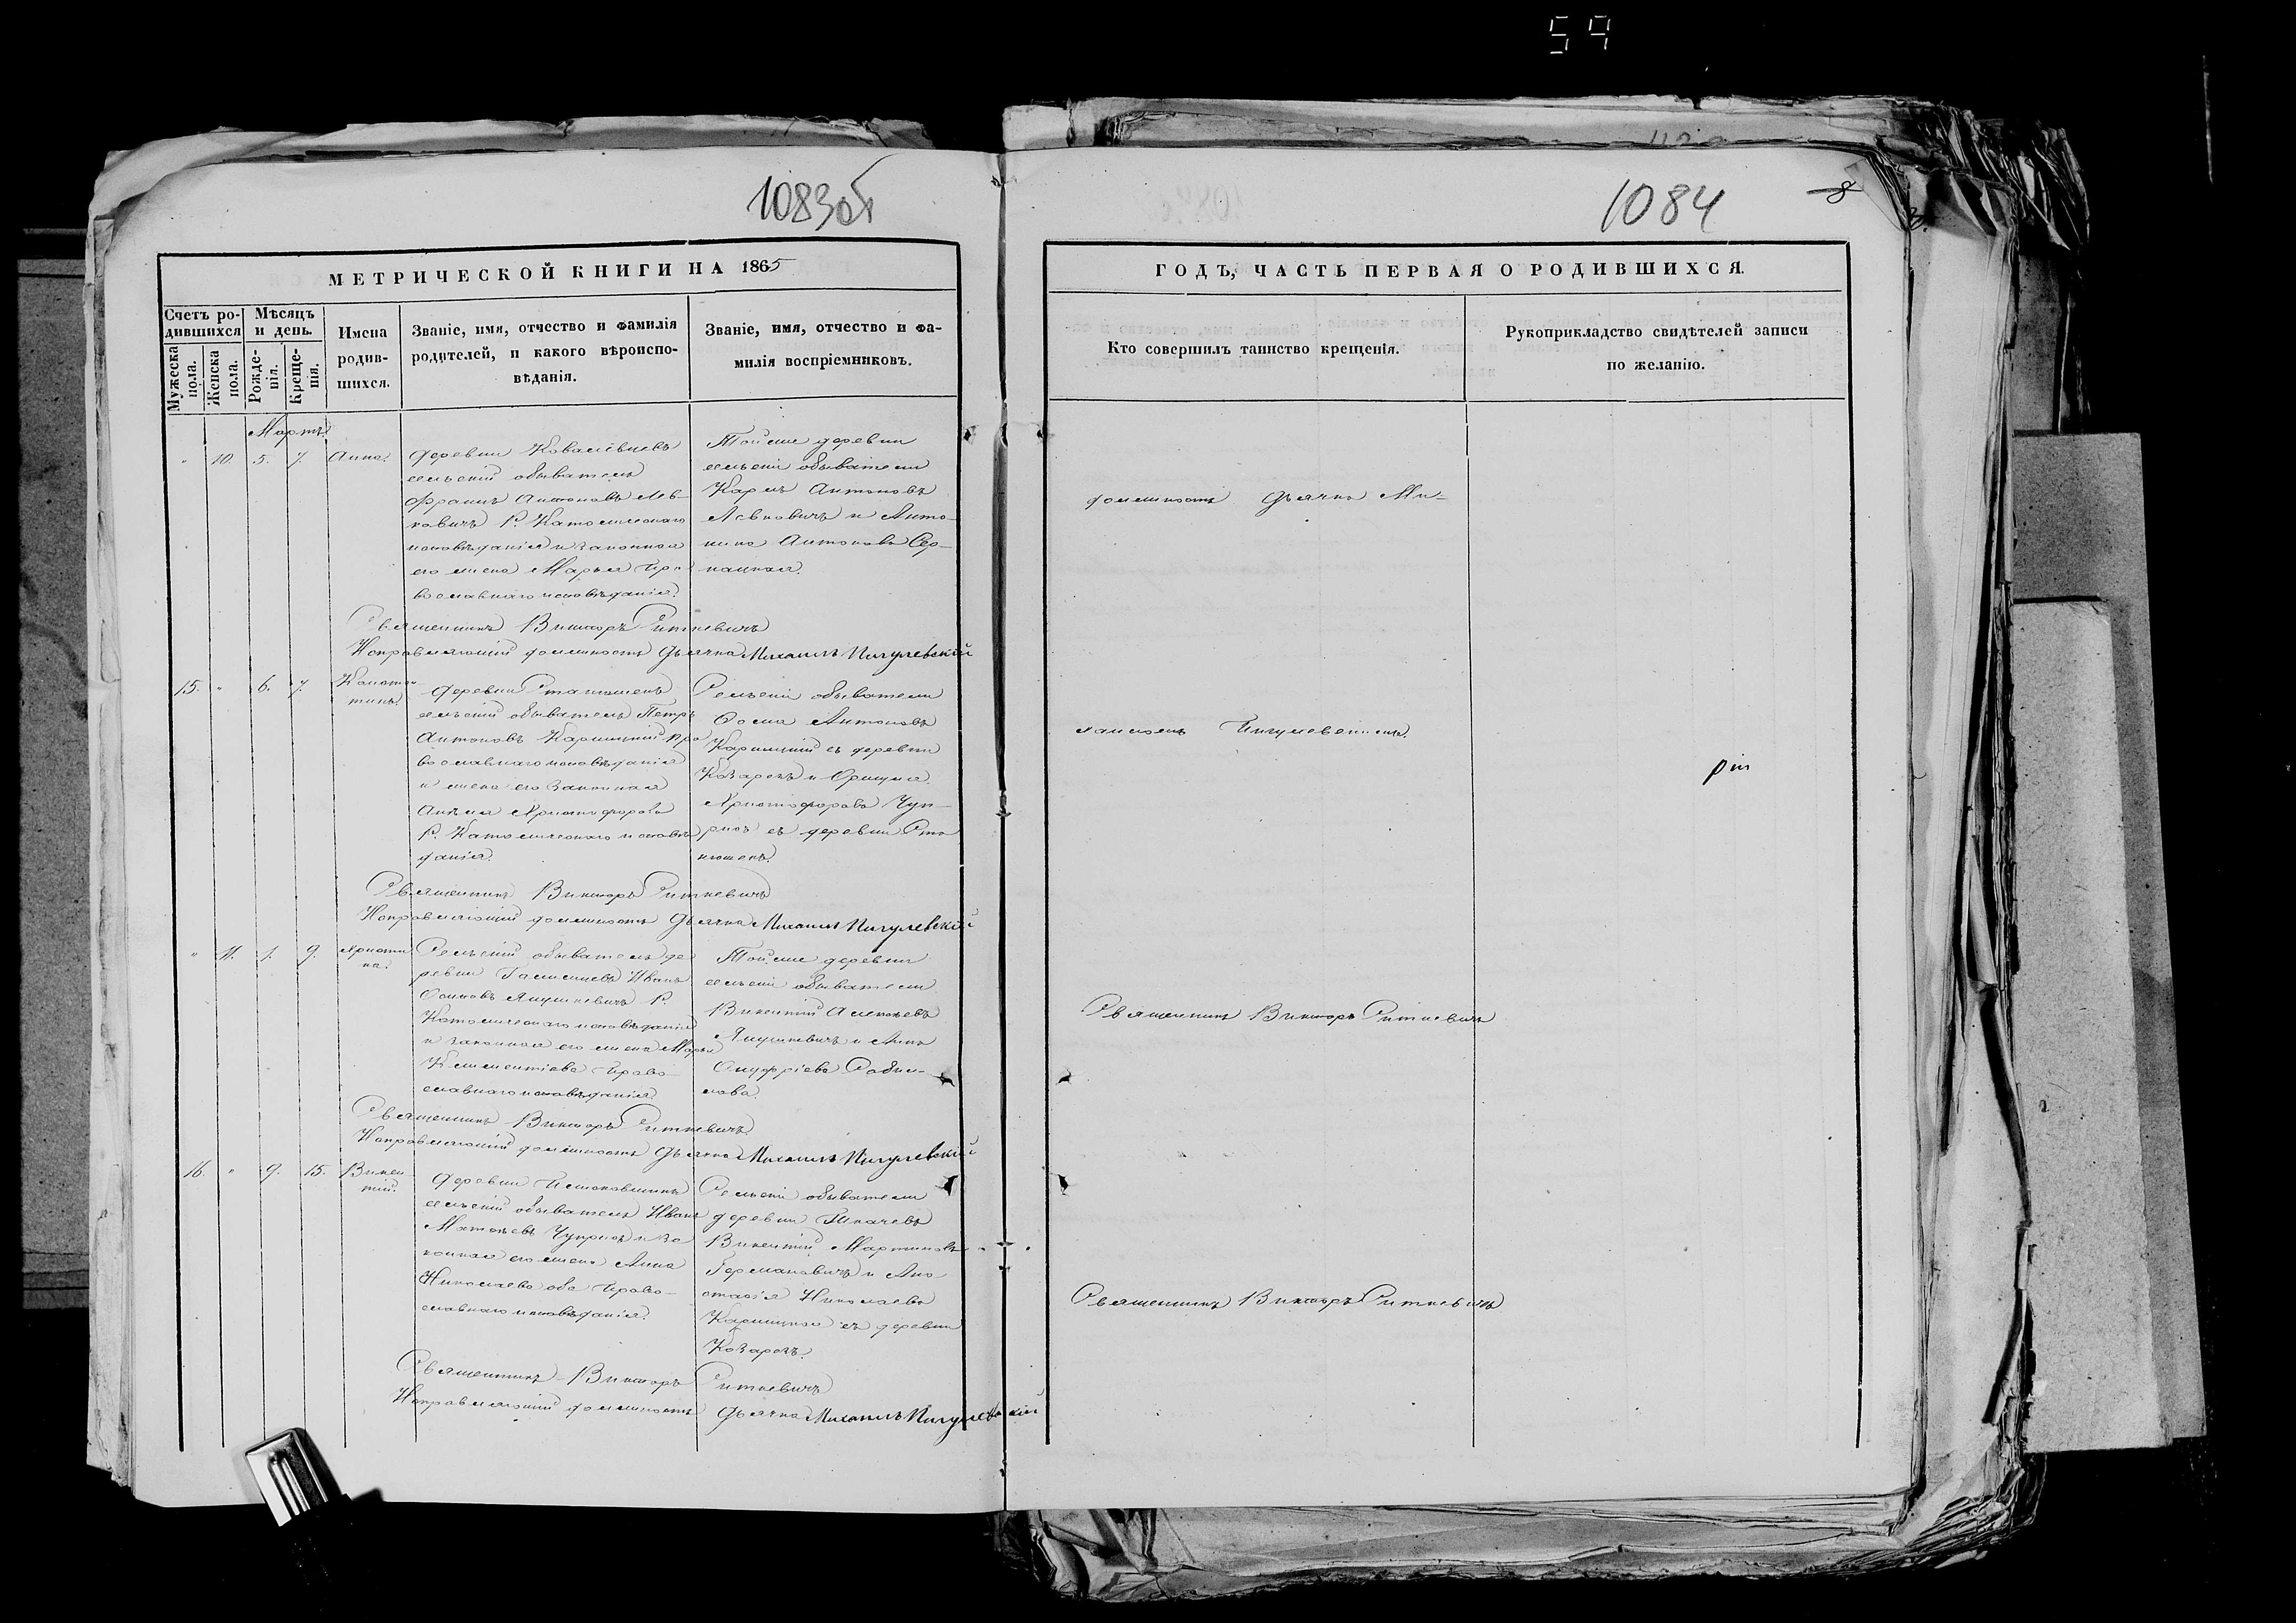 59
1083об
1084
8
МЕТРИЧЕСКОЙ КНИГИ НА 1865
ГОДЪ, ЧАСТЬ ПЕРВАЯ О РОДИВШИХСЯ.
Счетъ ро-
дившихся
Мужеска
пола.
Женска
пола.
Мѣсяцъ
и день.
Рожде-
нія.
Креще-
нія.
Имена
родив-
шихся.
Званіе, имя, отчество и фамилія
родителей, и какого вѣроиспо-
вѣданія.
Званіе, имя, отчество и фа-
милія воспріемниковъ.
Кто совершилъ таинство крещенія.
Рукоприкладство свидѣтелей записи
по желанію.
Мартъ
" 10. 5. 7. Анна.
деревни
сельскій обыватель
Францъ Антоновъ Лев-
ковичъ Р. Католическаго
исповѣданія и законная
его жена Марья Пра-
вославнаго исповѣданія.
Той же деревни
сельскіе обыватели
Карлъ Антоновъ
Левковичъ и Анто-
нина Антонова
должность дьячка Ми-
Священникъ Викторъ Ситкевичъ
Исправляющій должность дьячка Михаилъ Пигулевскій
15. " 6. 7. Констан-
тинъ.
деревни
сельскій обыватель Петръ
Антоновъ Карицкій Пра
вославнаго исповѣданія
и жена его законная
Анеля Христофорова
Р. Католическаго исповѣ
данія.
Сельскіе обыватели
Фома Антоновъ
Карицкій съ деревни
Козарезъ и
Христофорова
съ деревни
хаиломъ Пигулевскимъ.
Священникъ Викторъ Ситкевичъ
Исправляющій должность дьячка Михаилъ Пигулевскій
" 11. 1. 9. Христи
на.
Сельскій обыватель де
ревни Иванъ
Осиповъ Янушкевичъ Р.
Католическаго исповѣданія
и законная его жена Марья
Климентіева Право-
славнаго исповѣданія.
Той же деревни
сельскіе обыватели
Викентій Алексѣевъ
Янушкевичъ и Анна
Онуфріева
Священникъ Викторъ Ситкевичъ
Священникъ Викторъ Ситкевичъ
Исправляющій должность дьячка Михаилъ Пигулевскій
16. " 9. 15. Викен-
тій.
деревни
сельскій обыватель Иванъ
Матвѣевъ и за
конная его жена Анна
Николаева оба Право-
славнаго исповѣданія.
Сельскіе обыватели
деревни Ткачевъ
Викентій Мартиновъ
Германовичъ и Ана
стасія Николаева
Карицкая съ деревни
Козарезъ.
Священникъ Викторъ Ситкевичъ
Священникъ Викторъ Ситкевичъ
Исправляющій должность дьячка Михаилъ Пигулевскій